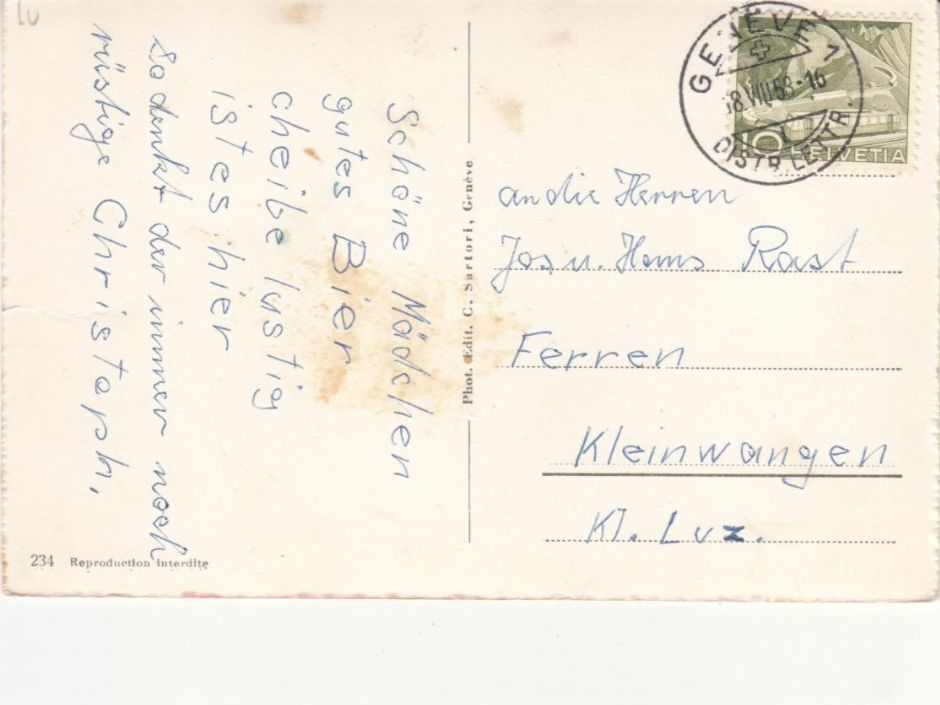 Schöne Mädchen
gutes Bier
cheibe lustig
ist es hier
So denkt der immer noch
rüstige Christoph.
234 Reproduction interdite
Phot. Edit. C. Sartori, Genève
GENÈVE 1
8.VIII.58-16
DISTR. LETTR.
10 HELVETIA
an die Herren
Jos u. Hans Rast
Ferren
Kleinwangen
Kt. Luz.